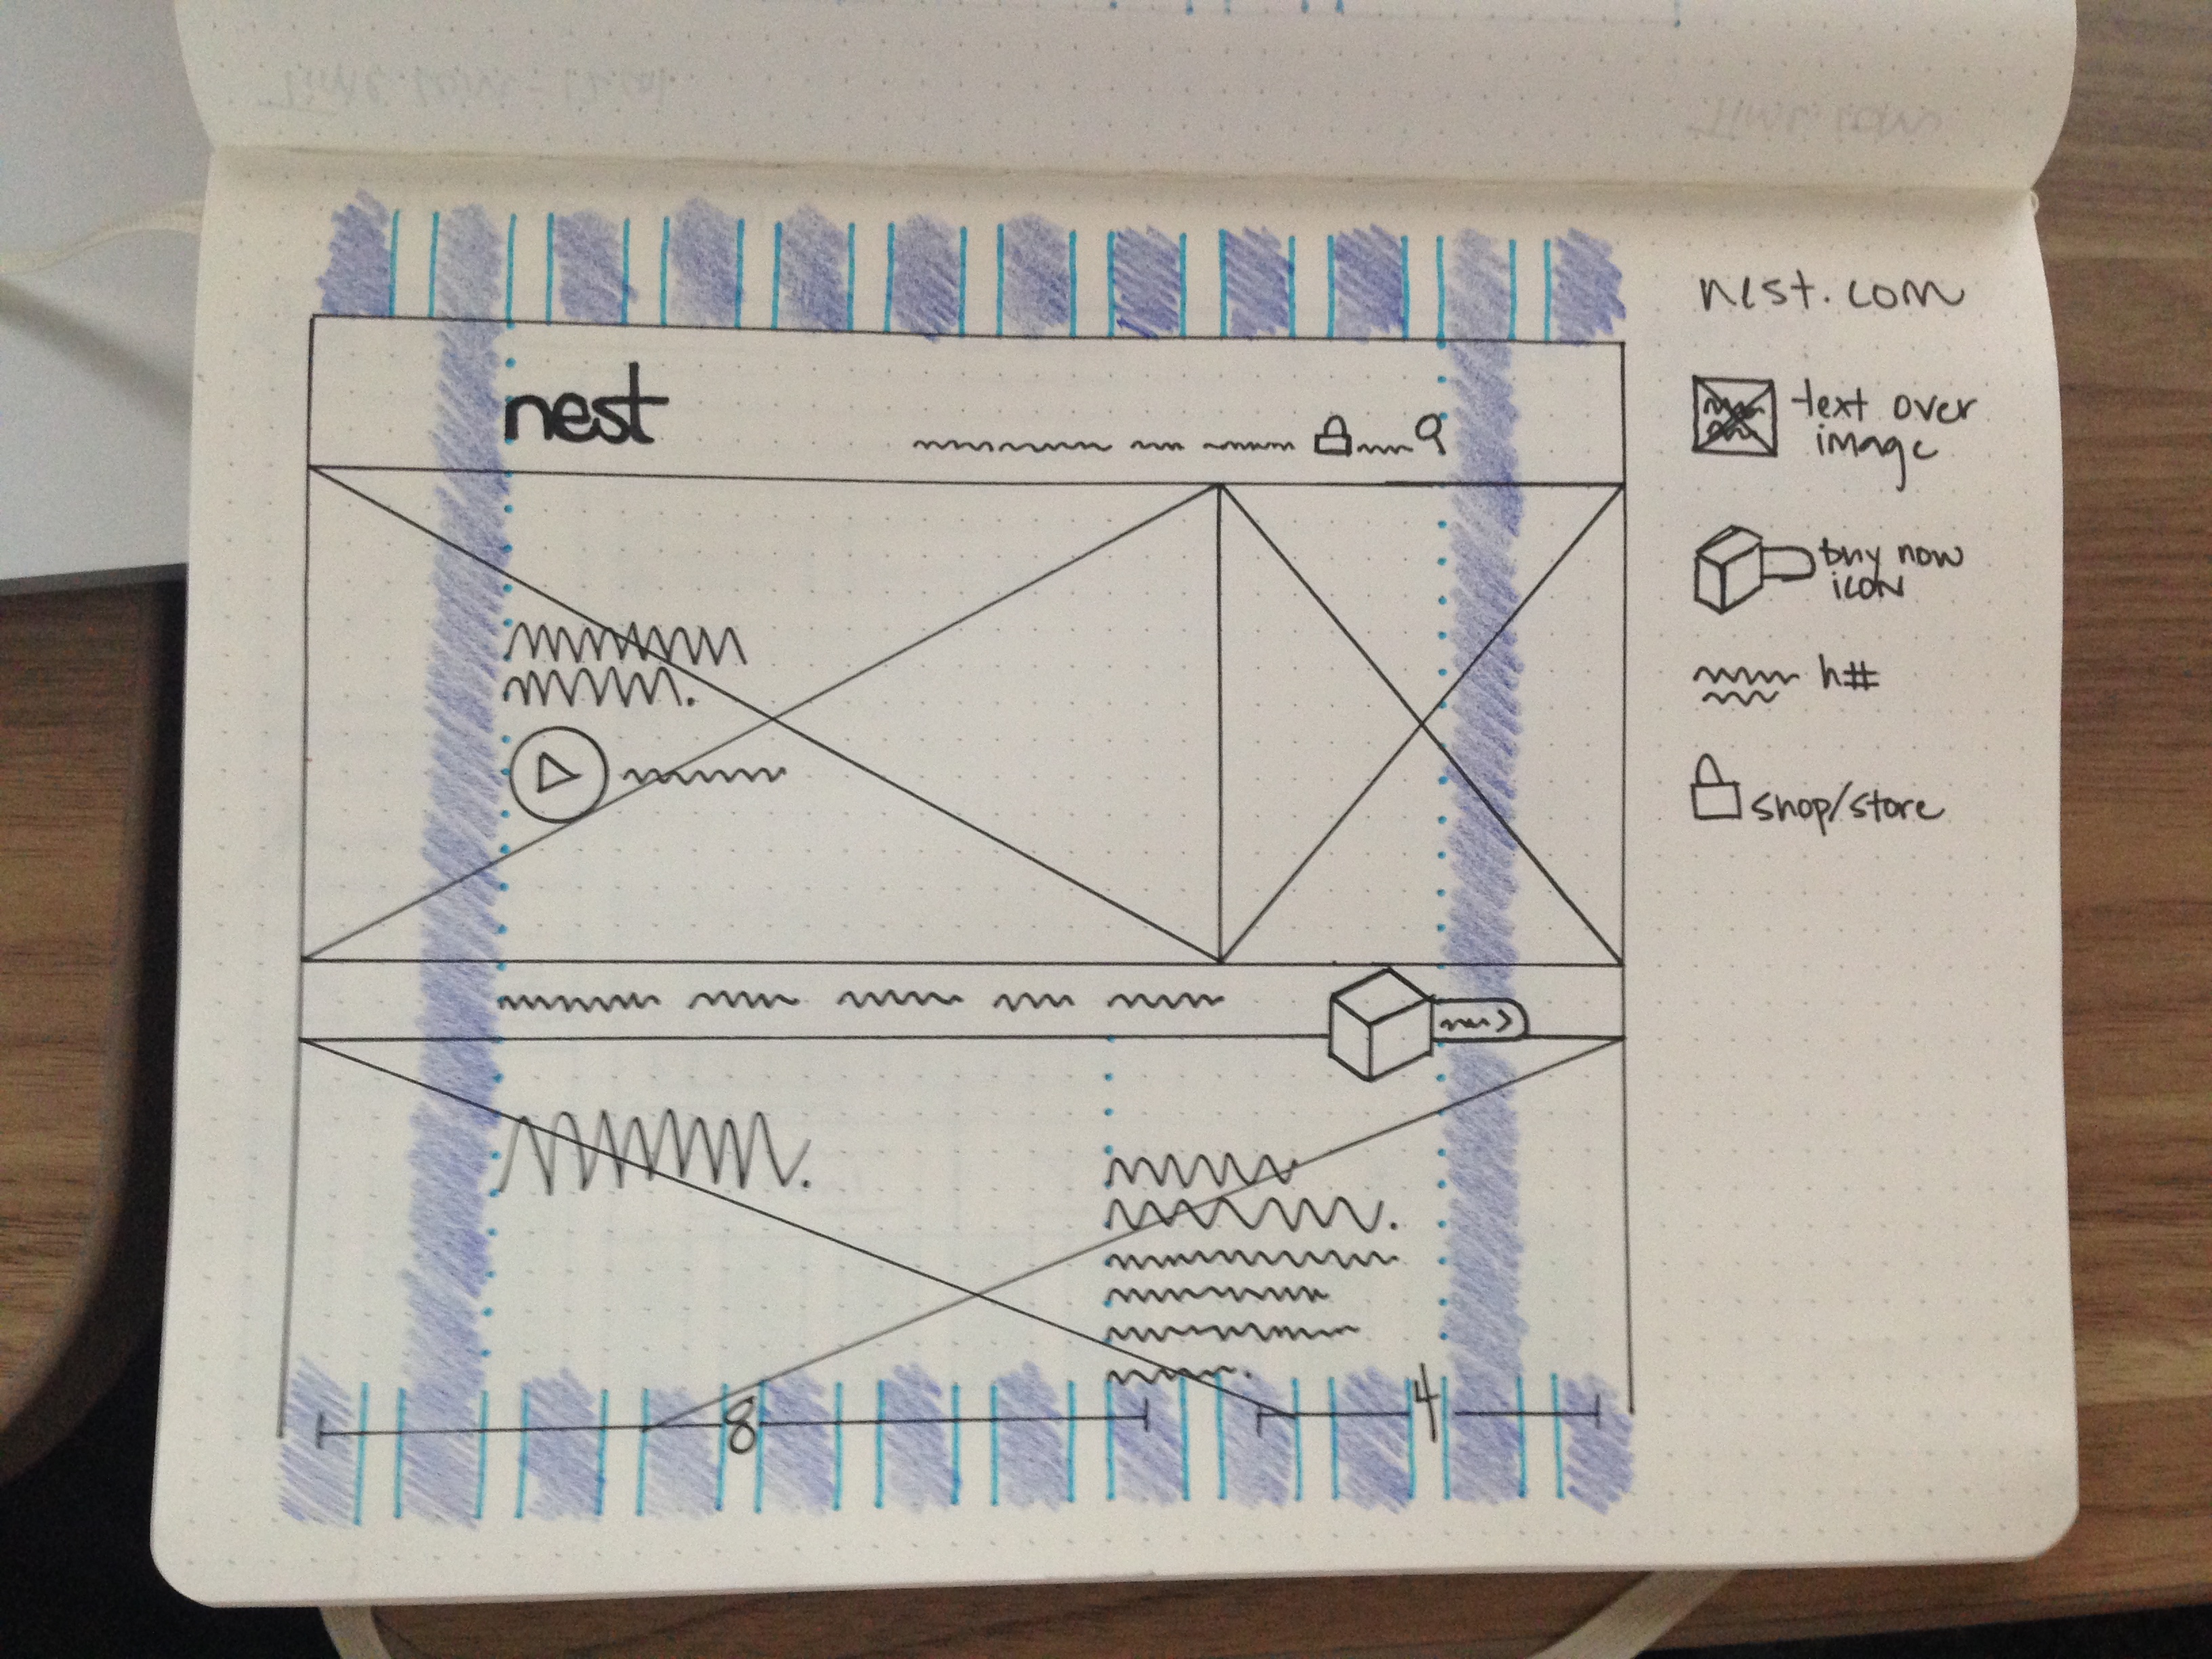 nest.com
nest
text over
image
buy now
icon
h#
shop/store
8
4